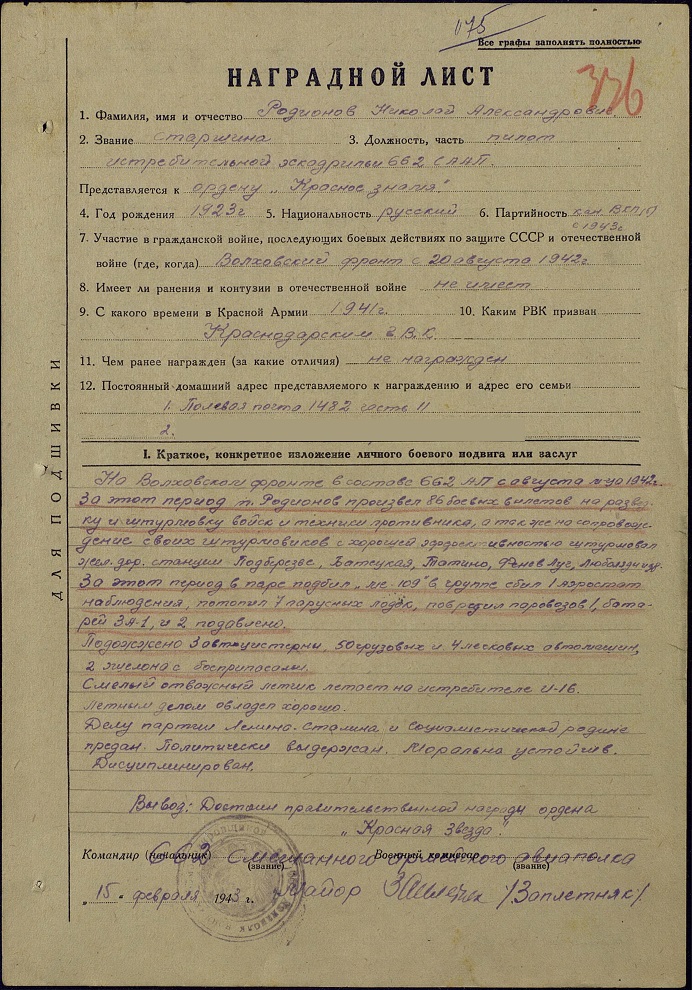 175
Все графы заполнять полностью
336
НАГРАДНОЙ ЛИСТ
1. Фамилия, имя и отчество Родионов Николай Александрович.
2. Звание старшина 3. Должность, часть пилот
истребительной эскадрильи 662 САП.
Представляется к ордену „Красное знамя".
4. Год рождения 1923г 5. Национальность русский 6. Партийность кан. ВКП(б)
с 1943г
7. Участие в гражданской войне, последующих боевых действиях по защите СССР и отечественной
войне (где, когда) Волховский фронт с 20 августа 1942г
8. Имеет ли ранения и контузии в отечественной войне не имеет
9. С какого времени в Красной Армии 1941г. 10. Каким РВК призван
Краснодарским Г.В.К.
11. Чем ранее награжден (за какие отличия) не награжден
12. Постоянный домашний адрес представляемого к награждению и адрес его семьи
1. Полевая почта 1482 часть 11
2.
I. Краткое, конкретное изложение личного боевого подвига или заслуг
На Волховском фронте в составе 662 АП с августа м-ца 1942г.
За этот период т. Родионов произвел 86 боевых вылетов на развед-
ку и штурмовку войск и техники противника, а так же на сопровож-
дение своих штурмовиков с хорошей эффективностью штурмовал
жел. дор. станции Подберезье, Батецкая, Татино, Финев Луг, Любань
За этот период в паре подбил „ме-109" в группе сбил 1 аэростат
наблюдения, потопил 7 парусных лодок, повредил паровозов 1, бата-
рей ЗА-1, и 2 подавлено.
Подожжено 3 автоцистерны, 50 грузовых и 4 легковых автомашин,
2 эшелона с боеприпасами.
Смелый отважный летчик летает на истребителе И-16.
Летным делом овладел хорошо.
Делу партии Ленина-Сталина и социалистической родине
предан. Политически выдержан. Морально устойчив.
Дисциплинирован.
Вывод: Достоин правительственной награды ордена
„Красная Звезда".
Командир (начальник) Военный комиссар
662 Смешанного Армейского авиаполка
(звание) (звание)
„15" февраля 1943 г. Майор /Заплетняк/
ДЛЯ ПОДШИВКИ